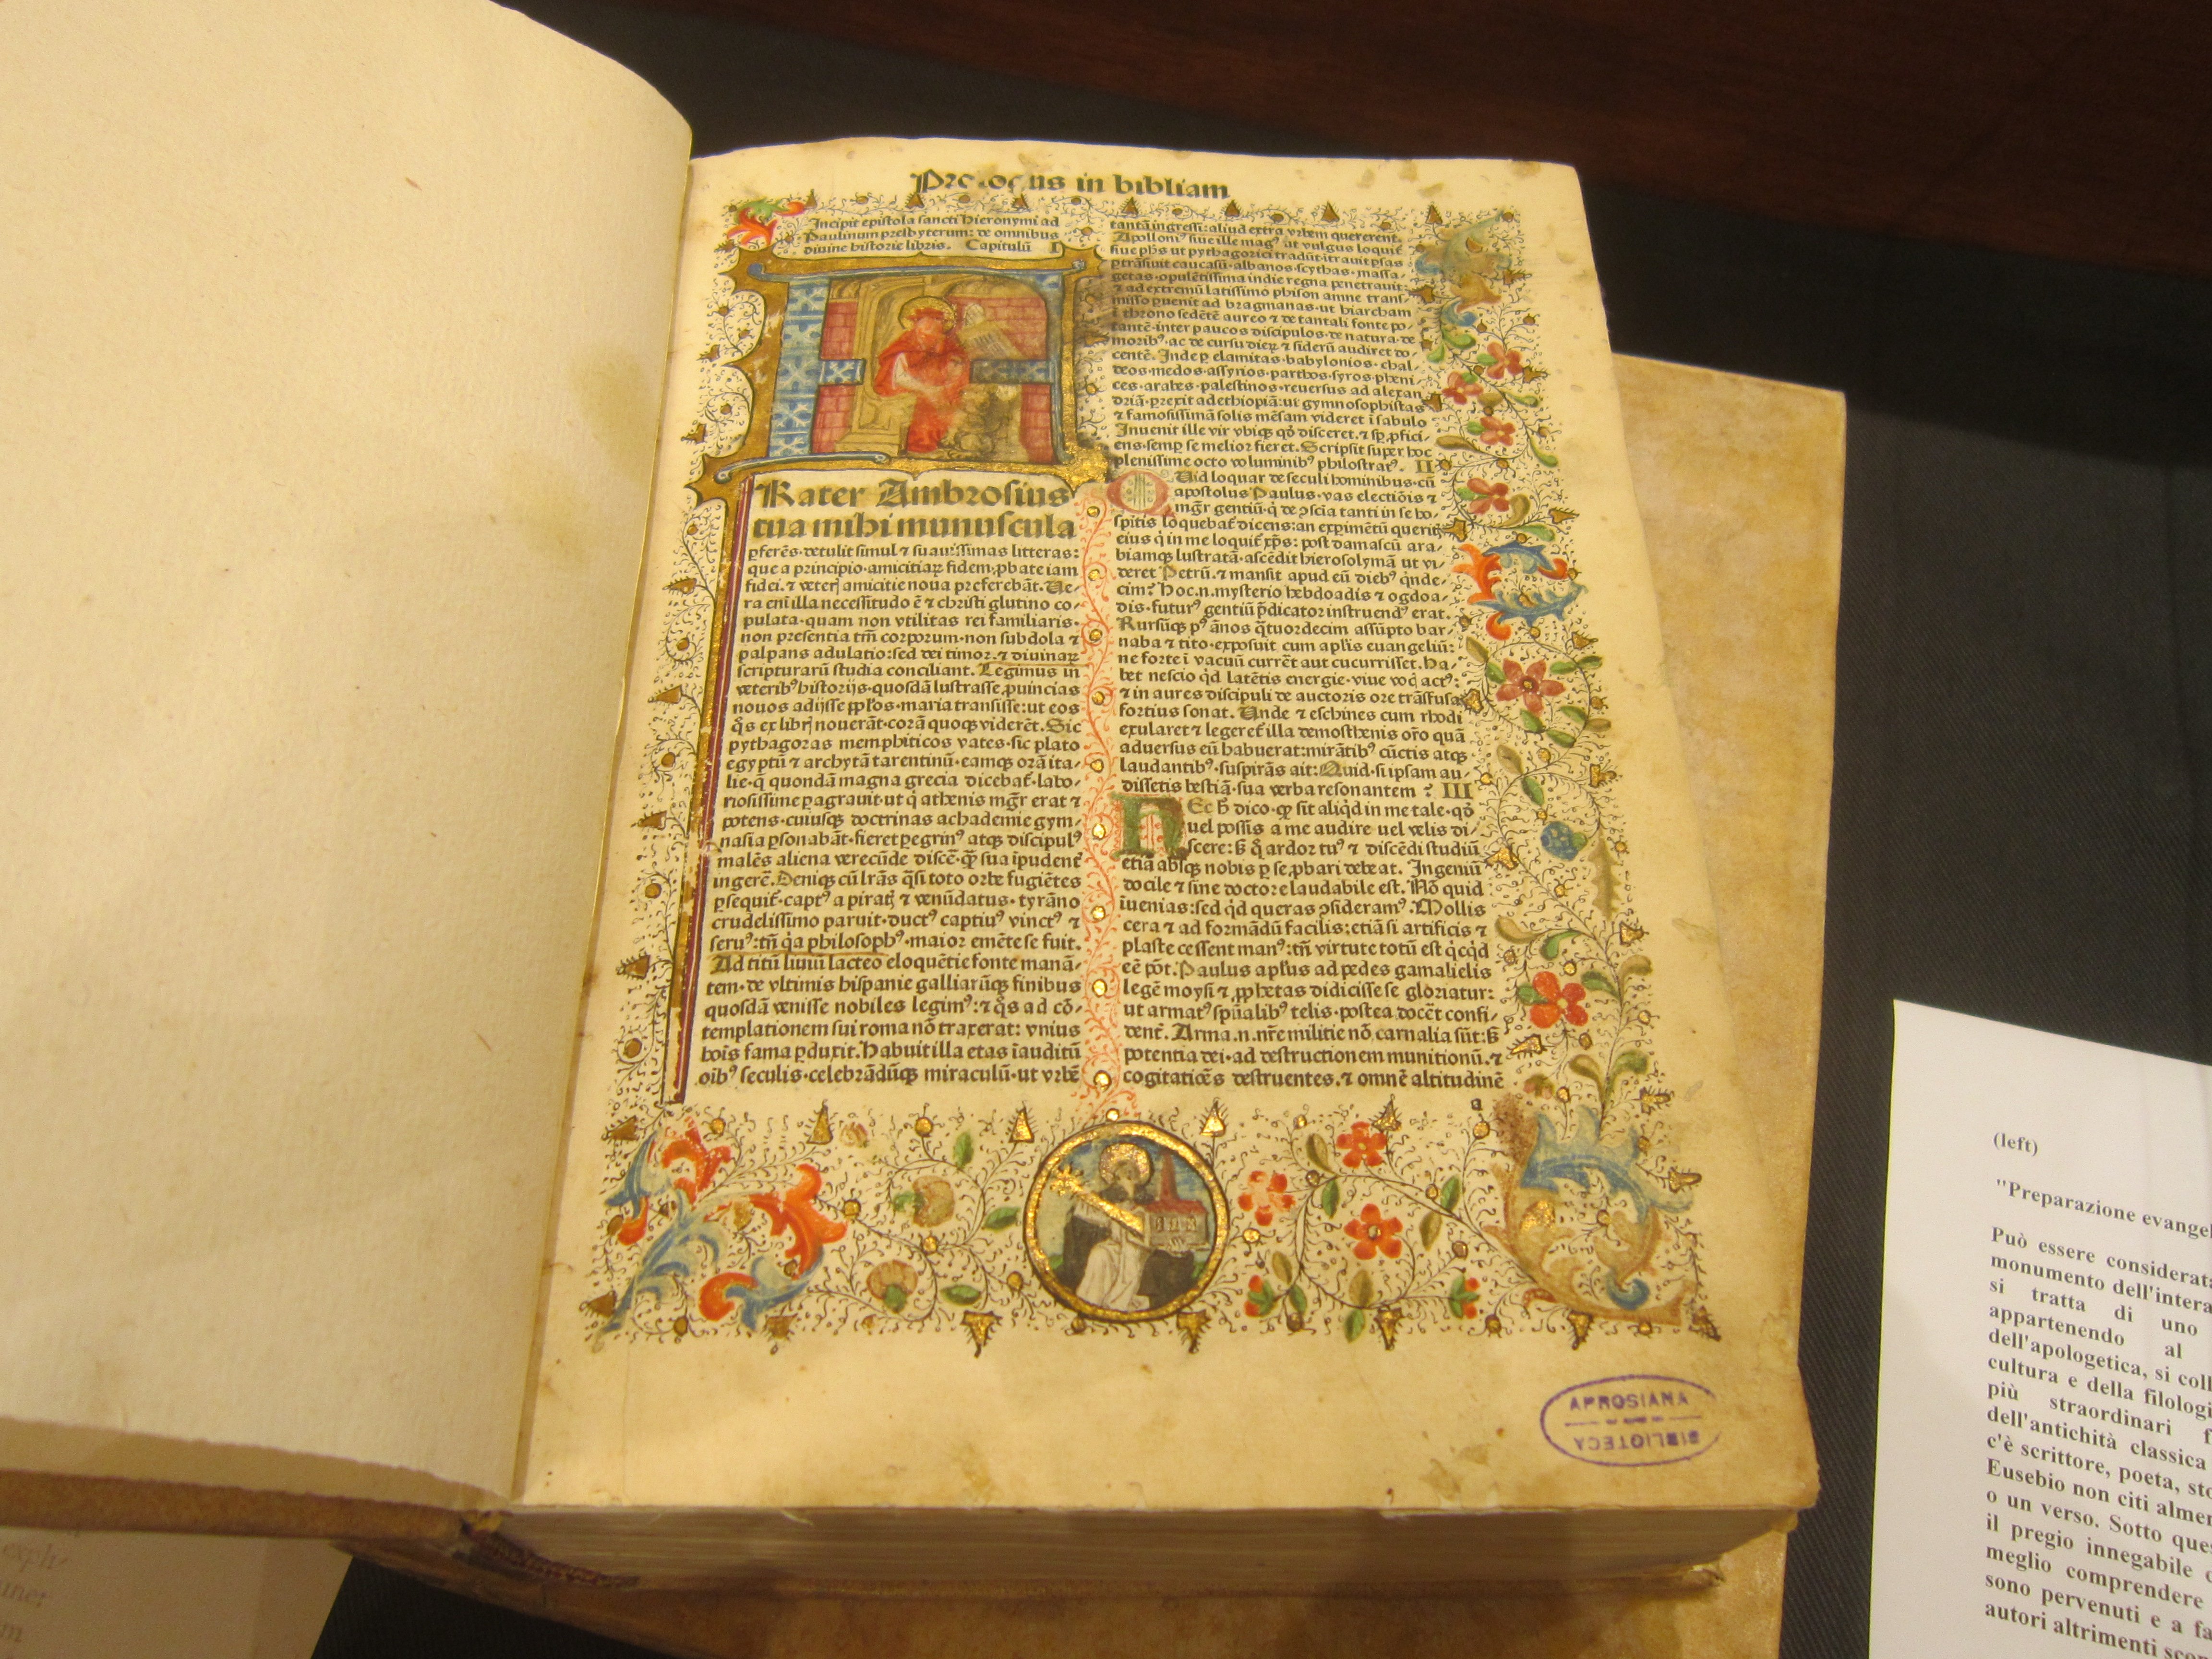 Prologus in bibliam
Incipit epistola sancti Hieronymi ad
Paulinum presbyterum: de omnibus
diuine historie libris. Capitulū I
Rater Ambrosius
tua mihi munuscula
ꝑferēs·detulit simul ⁊ suauissimas litteras:
que a principio·amicitiaꝝ fidem·ꝓbate iam
fidei·⁊ veterꝭ amicitie noua preferebāt. Ue/
ra eni illa necessitudo ē ⁊ christi glutino co/
pulata·quam non vtilitas rei familiaris·
non presentia tm̄ corporum·non subdola ⁊
palpans adulatio:sed dei timor·⁊ diuinaꝝ
scripturarū studia conciliant. Legimus in
veteribꝰ historijs·quosdā lustrasse ꝓuincias
nouos adijsse ppl'os·maria transisse:ut eos
qꝰs ex librꝭ nouerāt·corā quoqꝫ viderēt. Sic
pythagoras memphiticos vates·sic plato
egyptū ⁊ archytā tarentinū·eamqꝫ orā ita/
lie·q̄ quondā magna grecia dicebat̄·labo/
riosissime ꝑagrauit·ut q̇ athenis mgr̄ erat ⁊
potens·cuiusqꝫ doctrinas achademie gym/
nasia ꝑsonabāt·fieret ꝑegrinꝰ atqꝫ discipulꝰ
malēs aliena verecūde discē·q̄ꝫ sua īpudent̄
ingerē. Deniqꝫ cū lr̄as q̄si toto orbe fugiētes
ꝑsequit̄·captꝰ a piratꝭ ⁊ venūdatus·tyrāno
crudelissimo paruit·ductꝰ captiuꝰ vinctꝰ ⁊
seruꝰ:tn̄ q̇a philosophꝰ·maior emēte se fuit.
Ad titū liuiū lacteo eloquētie fonte manā/
tem·de vltimis hispanie galliarūqꝫ finibus
quosdā venisse nobiles legimꝰ:⁊ qꝰs ad cō/
templationem sui roma nō traxerat: vnius
hoīs fama ꝑduxit. Habuit illa etas īauditū
oībꝰ seculis·celebrādūqꝫ miraculū·ut vrbē
tantā ingressi:aliud extra vrbem quererent.
Apolloniꝰ siue ille magꝰ ut vulgus loquit̄
siue ph̄s ut pythagorici tradūt·itrauit ꝑsas
ꝑtrāsiuit caucasū·albanos·scythas·massa/
getas·opulētissima indie regna penetrauit:
⁊ ad extremū latissimo phison amne trans/
misso ꝑuenit ad bragmanas·ut hiarcham
ī throno sedētē aureo ⁊ de tantali fonte po/
tantē·inter paucos discipulos·de natura·de
moribꝰ·ac de cursu dieꝝ ⁊ siderū audiret do/
centē. Inde ꝑ elamitas·babylonios·chal/
deos·medos·assyrios·parthos·syros·pheni/
ces·arabes·palestinos·reuersus ad alexan
driā·ꝑrexit ad ethiopiā:ut gymnosophistas
⁊ famosissimā solis mēsam videret ī sabulo
Inuenit ille vir vbiqꝫ qḋ disceret·⁊ sꝑ ꝓfici/
ens·semꝑ se melior fieret. Scripsit super hoc
plenissime octo voluminibꝰ philostratꝰ. II
Q Uid loquar de seculi hominibus·cū
apostolus Paulus·vas electiōis ⁊
mgr̄ gentiū·q̇ de ꝯscia tanti in se ho/
spitis loquebat̄ dicens:an exꝑimētū queritis
eius q̇ in me loquit̄ xp̄s: post damascū ara/
biamqꝫ lustratā·ascēdit hierosolymā ut vi/
deret Petrū·⁊ mansit apud eū diebꝰ q̇nde/
cim? Hoc.n.mysterio hebdoadis ⁊ ogdoa/
dis·futurꝰ gentiū p̄dicator instruendꝰ erat.
Rursūqꝫ pꝰ ānos q̄tuordecim assūpto bar/
naba ⁊ tito·exposuit cum apl'is euangeliū:
ne forte ī vacuū currēt aut cucurrisset. Ha/
bet nescio qḋ latētis energie·viue vocꝭ actꝰ:
⁊ in aures discipuli de auctoris ore trāsfusa
fortius sonat. Unde ⁊ eschines cum rhodi
exularet ⁊ legeret̄ illa demosthenis or̄o quā
aduersus eū habuerat:mirātibꝰ cūctis atqꝫ
laudantibꝰ·suspirās ait: Quid·si ipsam au/
dissetis bestiā·sua verba resonantem ? III
N Ec h̄ dico·qꝫ sit aliq̇d in me tale·qḋ
uel possis a me audire uel velis di/
scere:s̄ qꝫ ardor tuꝰ ⁊ discēdi studiū
etiā absqꝫ nobis ꝑ se ꝓbari debeat. Ingeniū
docile ⁊ sine doctore laudabile est. Nō quid
īuenias:sed q̇d queras ꝯsideramꝰ. Mollis
cera ⁊ ad formādū facilis:etiā si artificis ⁊
plaste cessent manꝰ:tn̄ virtute totū est q̇cq̇d
eē pōt. Paulus apl'us ad pedes gamalielis
legē moysi ⁊ ꝓphetas didicisse se gloriatur:
ut armatꝰ spūalibꝰ telis·postea docēt confi/
dent̄. Arma.n.nr̄e militie nō carnalia sūt:s̄
potentia dei·ad destructionem munitionū·⁊
cogitatiōēs destruentes·⁊ omnē altitudinē
a
APROSIANA
BIBLIOTECA
(left)
"Preparazione evangel
Può essere considerata
monumento dell'intera
si tratta di uno
appartenendo al
dell'apologetica, si coll
cultura e della filologi
più straordinari f
dell'antichità classica
c'è scrittore, poeta, sto
Eusebio non citi almen
o un verso. Sotto ques
il pregio innegabile
meglio comprendere
sono pervenuti e a fa
autori altrimenti scon